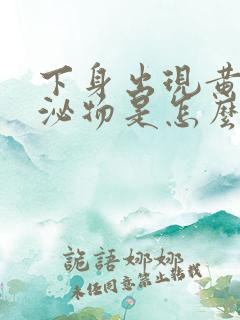 下身出現黃
泌物是怎麼
詭語娜娜
未經同意禁止轉載